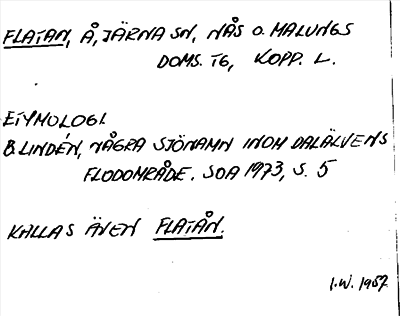 FLATAN, Å, JÄRNA SN, NÅS O. MALUNGS
DOMS. TG, KOPP. L.
ETYMOLOGI.
B. LINDÉN, NÅGRA SJÖNAMN INOM DALÄLVENS
FLODOMRÅDE. SOA 1973, S. 5
KALLAS ÄVEN FLATÅN.
I.W. 1987